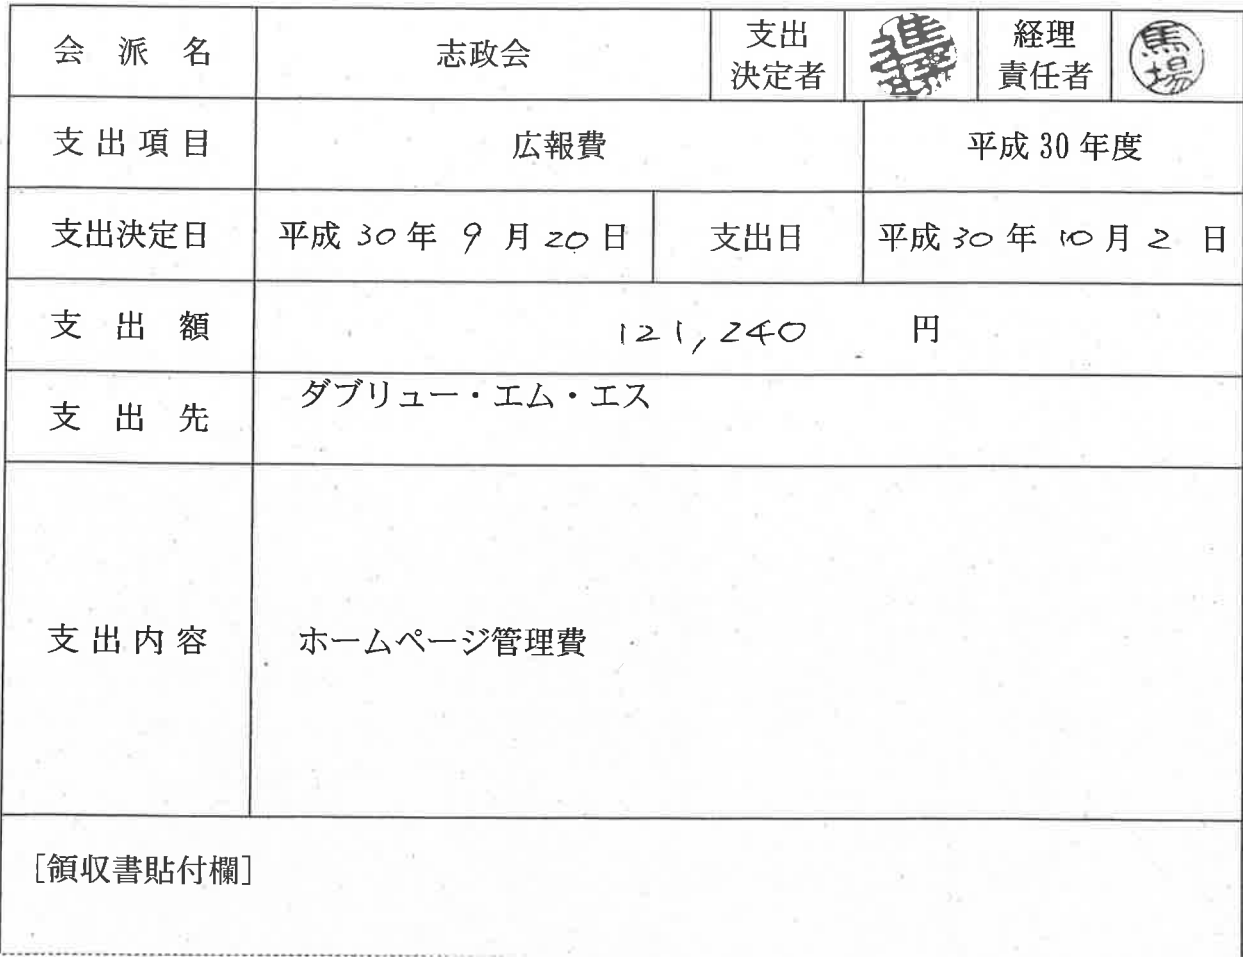 会派名 志政会 支出決定者 経理責任者 馬場
支出項目 広報費 平成30年度
支出決定日 平成30年9月20日 支出日 平成30年10月2日
支出額 121,240 円
支出先 ダブリュー・エム・エス
支出内容 ホームページ管理費
[領収書貼付欄]